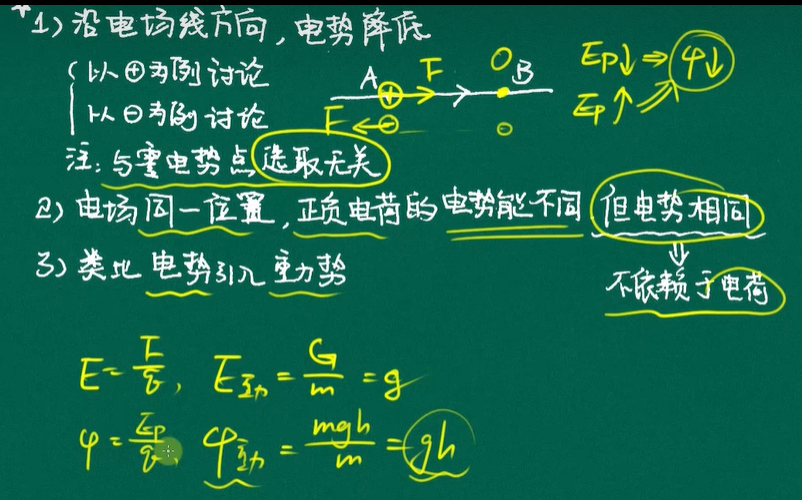 1) 沿电场线方向，电势降低
以⊕为例讨论
以⊖为例讨论
A F B
F
Ep↓ ⇒ φ↓
Ep↑
注：与零电势点选取无关
2) 电场同一位置，正负电荷的电势能不同，但电势相同
⇓
不依赖于电荷
3) 类比电势引入重力势
E = F/q， E重力 = G/m = g
φ = Ep/q， φ重力 = mgh/m = gh